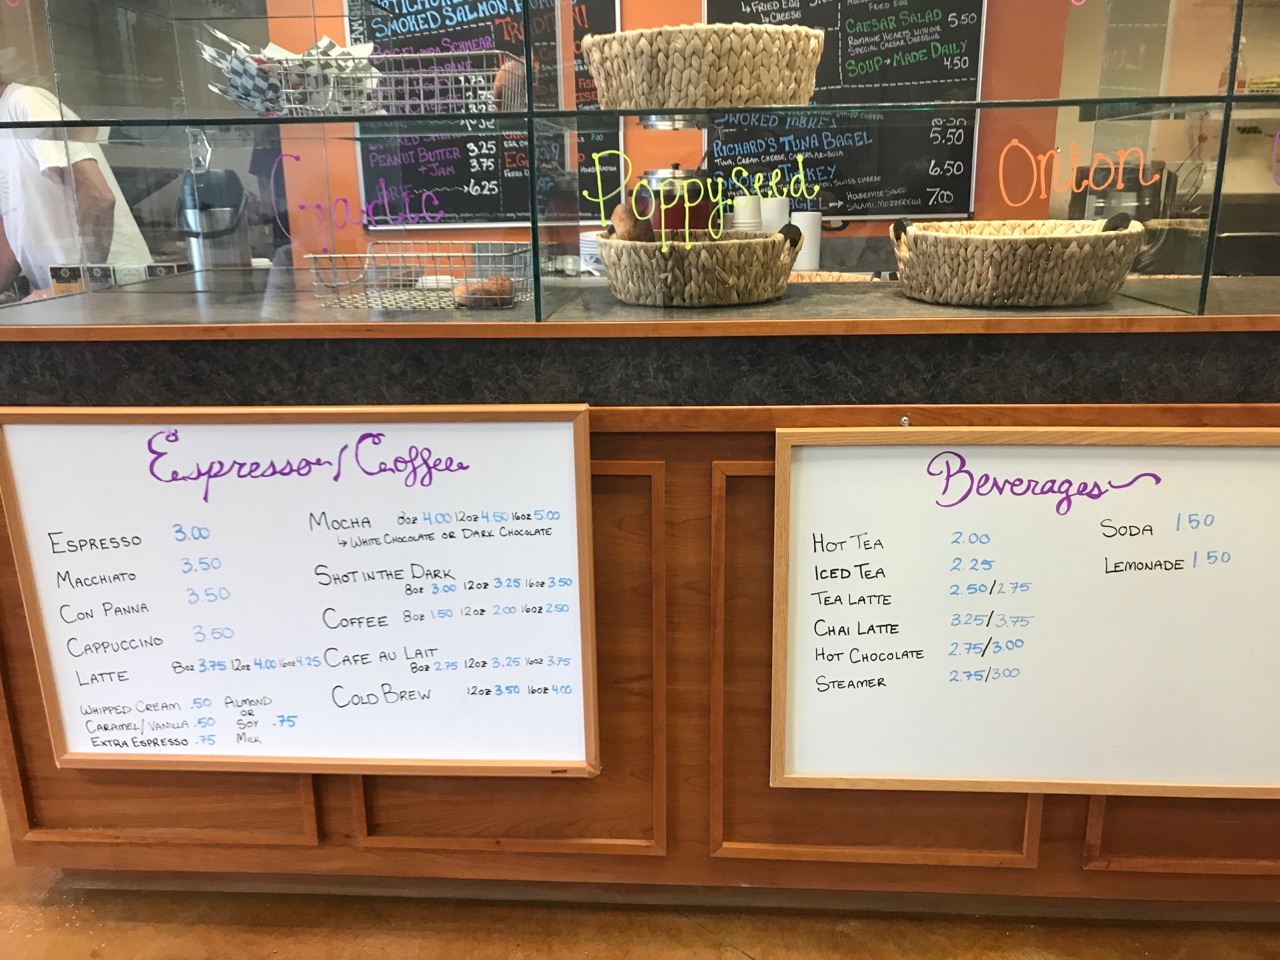 SMOKED SALMON,
BAGEL AND SCHMEAR
PEANUT BUTTER
+ JAM
3.25
3.75
6.25
7.00
FRIED EGG
CHEESE
CAESAR SALAD 5.50
ROMAINE HEARTS WITH OUR
SPECIAL CAESAR DRESSING
SOUP → MADE DAILY
4.50
SMOKED TURKEY
5.50
RICHARD'S TUNA BAGEL
6.50
HOUSEMADE SAUCE
SALAMI, MOZZERELLA
7.00
Garlic
Poppyseed
Onion
Espresso/Coffee
ESPRESSO 3.00
MACCHIATO 3.50
CON PANNA 3.50
CAPPUCCINO 3.50
LATTE 8oz 3.75 12oz 4.00 16oz 4.25
WHIPPED CREAM .50
CARAMEL/VANILLA .50
EXTRA ESPRESSO .75
ALMOND
OR
SOY .75
MILK
MOCHA 8oz 4.00 12oz 4.50 16oz 5.00
↳ WHITE CHOCOLATE OR DARK CHOCOLATE
SHOT IN THE DARK
8oz 3.00 12oz 3.25 16oz 3.50
COFFEE 8oz 1.50 12oz 2.00 16oz 2.50
CAFE AU LAIT
8oz 2.75 12oz 3.25 16oz 3.75
COLD BREW 12oz 3.50 16oz 4.00
Beverages
HOT TEA 2.00
ICED TEA 2.25
TEA LATTE 2.50/2.75
CHAI LATTE 3.25/3.75
HOT CHOCOLATE 2.75/3.00
STEAMER 2.75/3.00
SODA 1.50
LEMONADE 1.50